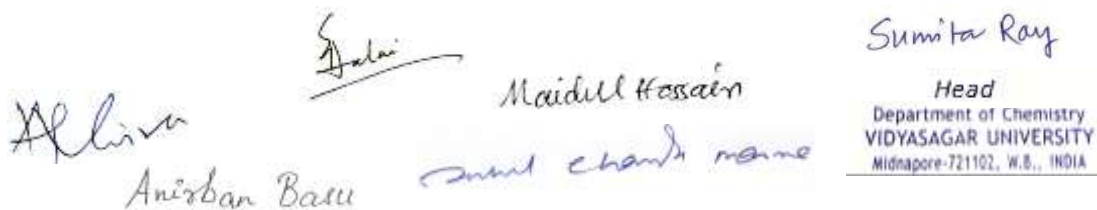 Dalai
Maidul Hossain
Anirban Basu
Sumita Ray
Head
Department of Chemistry
VIDYASAGAR UNIVERSITY
Midnapore-721102, W.B., INDIA